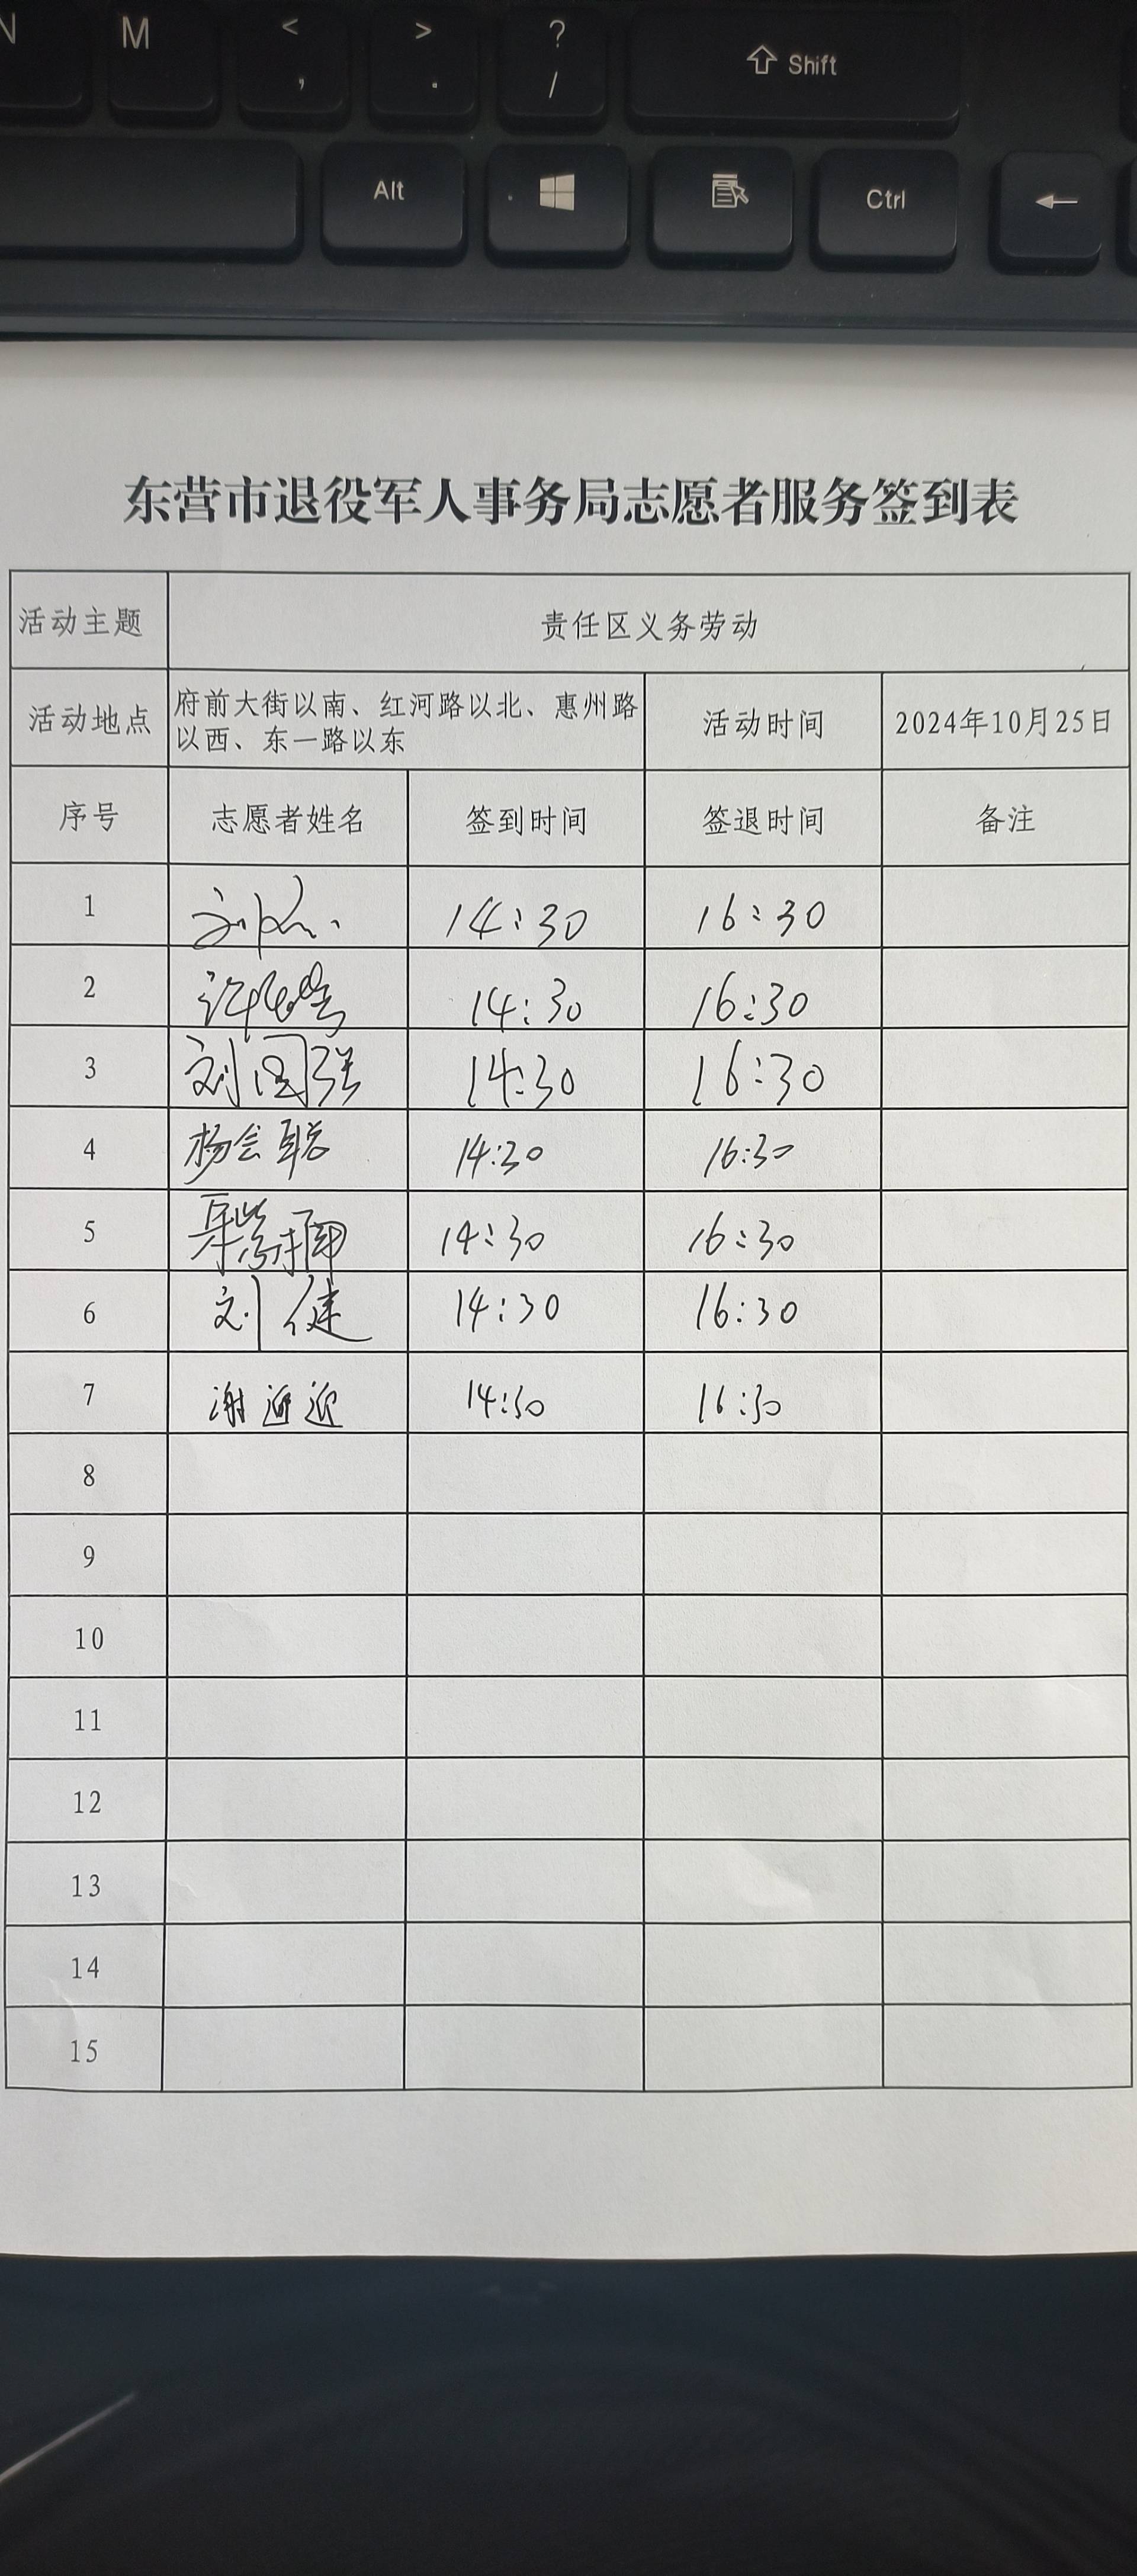 N M < , > . ? / Shift
Alt Ctrl
东营市退役军人事务局志愿者服务签到表
活动主题 责任区义务劳动
活动地点 府前大街以南、红河路以北、惠州路
以西、东一路以东 活动时间 2024年10月25日
序号 志愿者姓名 签到时间 签退时间 备注
1 14:30 16:30
2 14:30 16:30
3 刘国强 14:30 16:30
4 杨会聪 14:30 16:30
5 14:30 16:30
6 刘健 14:30 16:30
7 谢迎迎 14:30 16:30
8
9
10
11
12
13
14
15